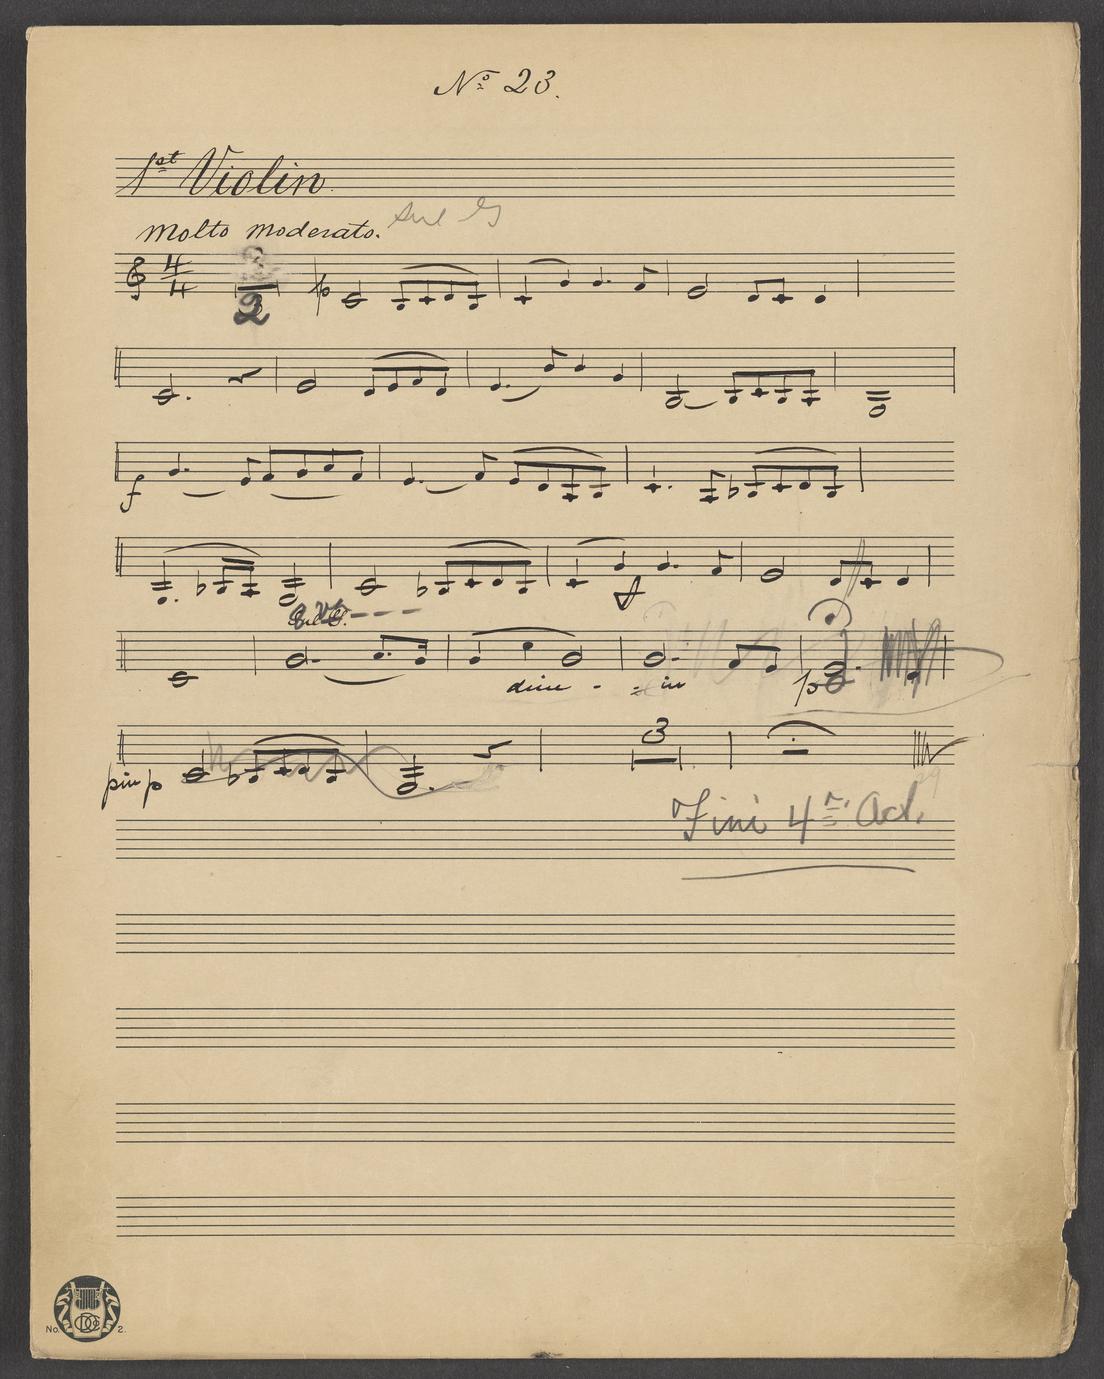 No 23.
1st Violin.
Molto moderato. Sul G
4
4
2
p
f
f
8va
dim - - in
p
più p
3
Fini 4me Act.
No. 2.